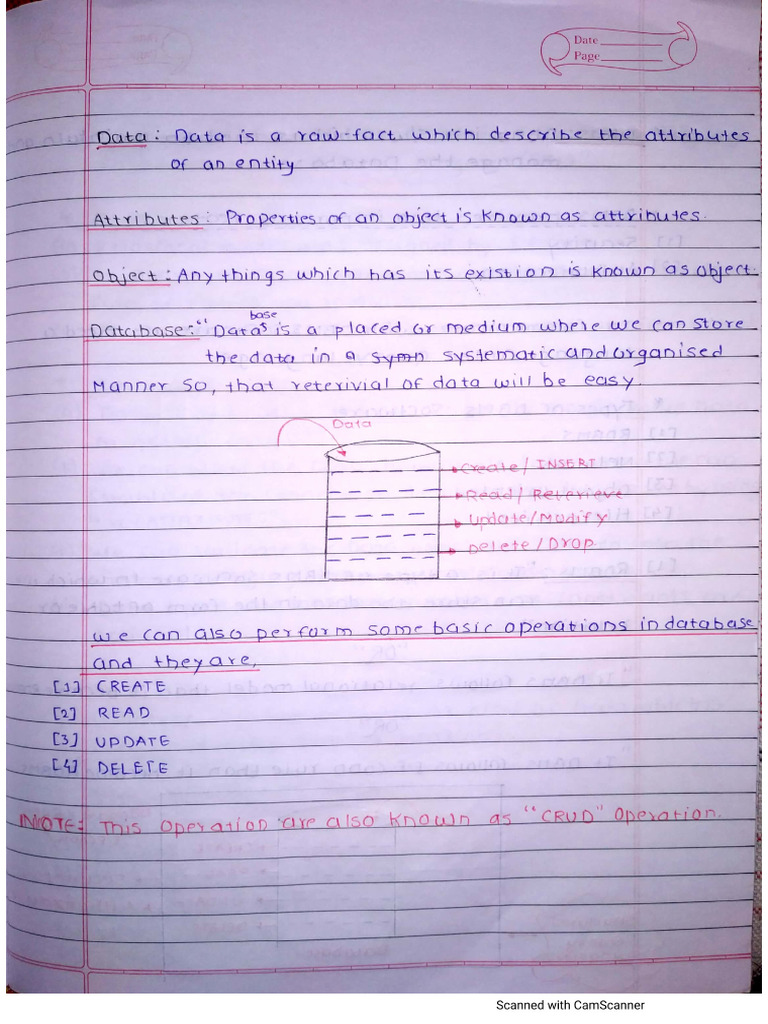 Date
Page
Data: Data is a raw-fact which describe the attributes
of an entity
Attributes: Properties of an object is known as attributes.
Object: Any things which has its existion is known as object.
base
Database: "Data is a placed or medium where we can store
the data in a systematic and organised
Manner so, that reterivial of data will be easy.
Data
Create/INSERT
Read/Reterieve
Update/Modify
Delete/Drop
we can also perform some basic operations in database
and they are,
[1] CREATE
[2] READ
[3] UPDATE
[4] DELETE
NOTE: This operation are also known as "CRUD" operation.
Scanned with CamScanner